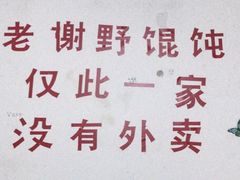 老谢野馄饨
仅此一家
没有外卖